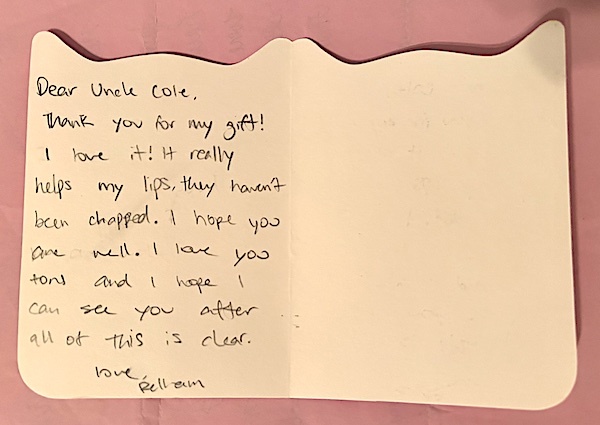 Dear Uncle Cole,
Thank you for my gift!
I love it! It really
helps my lips, they haven't
been chapped. I hope you
are well. I love you
tons and I hope I
can see you after
all of this is clear.
love,